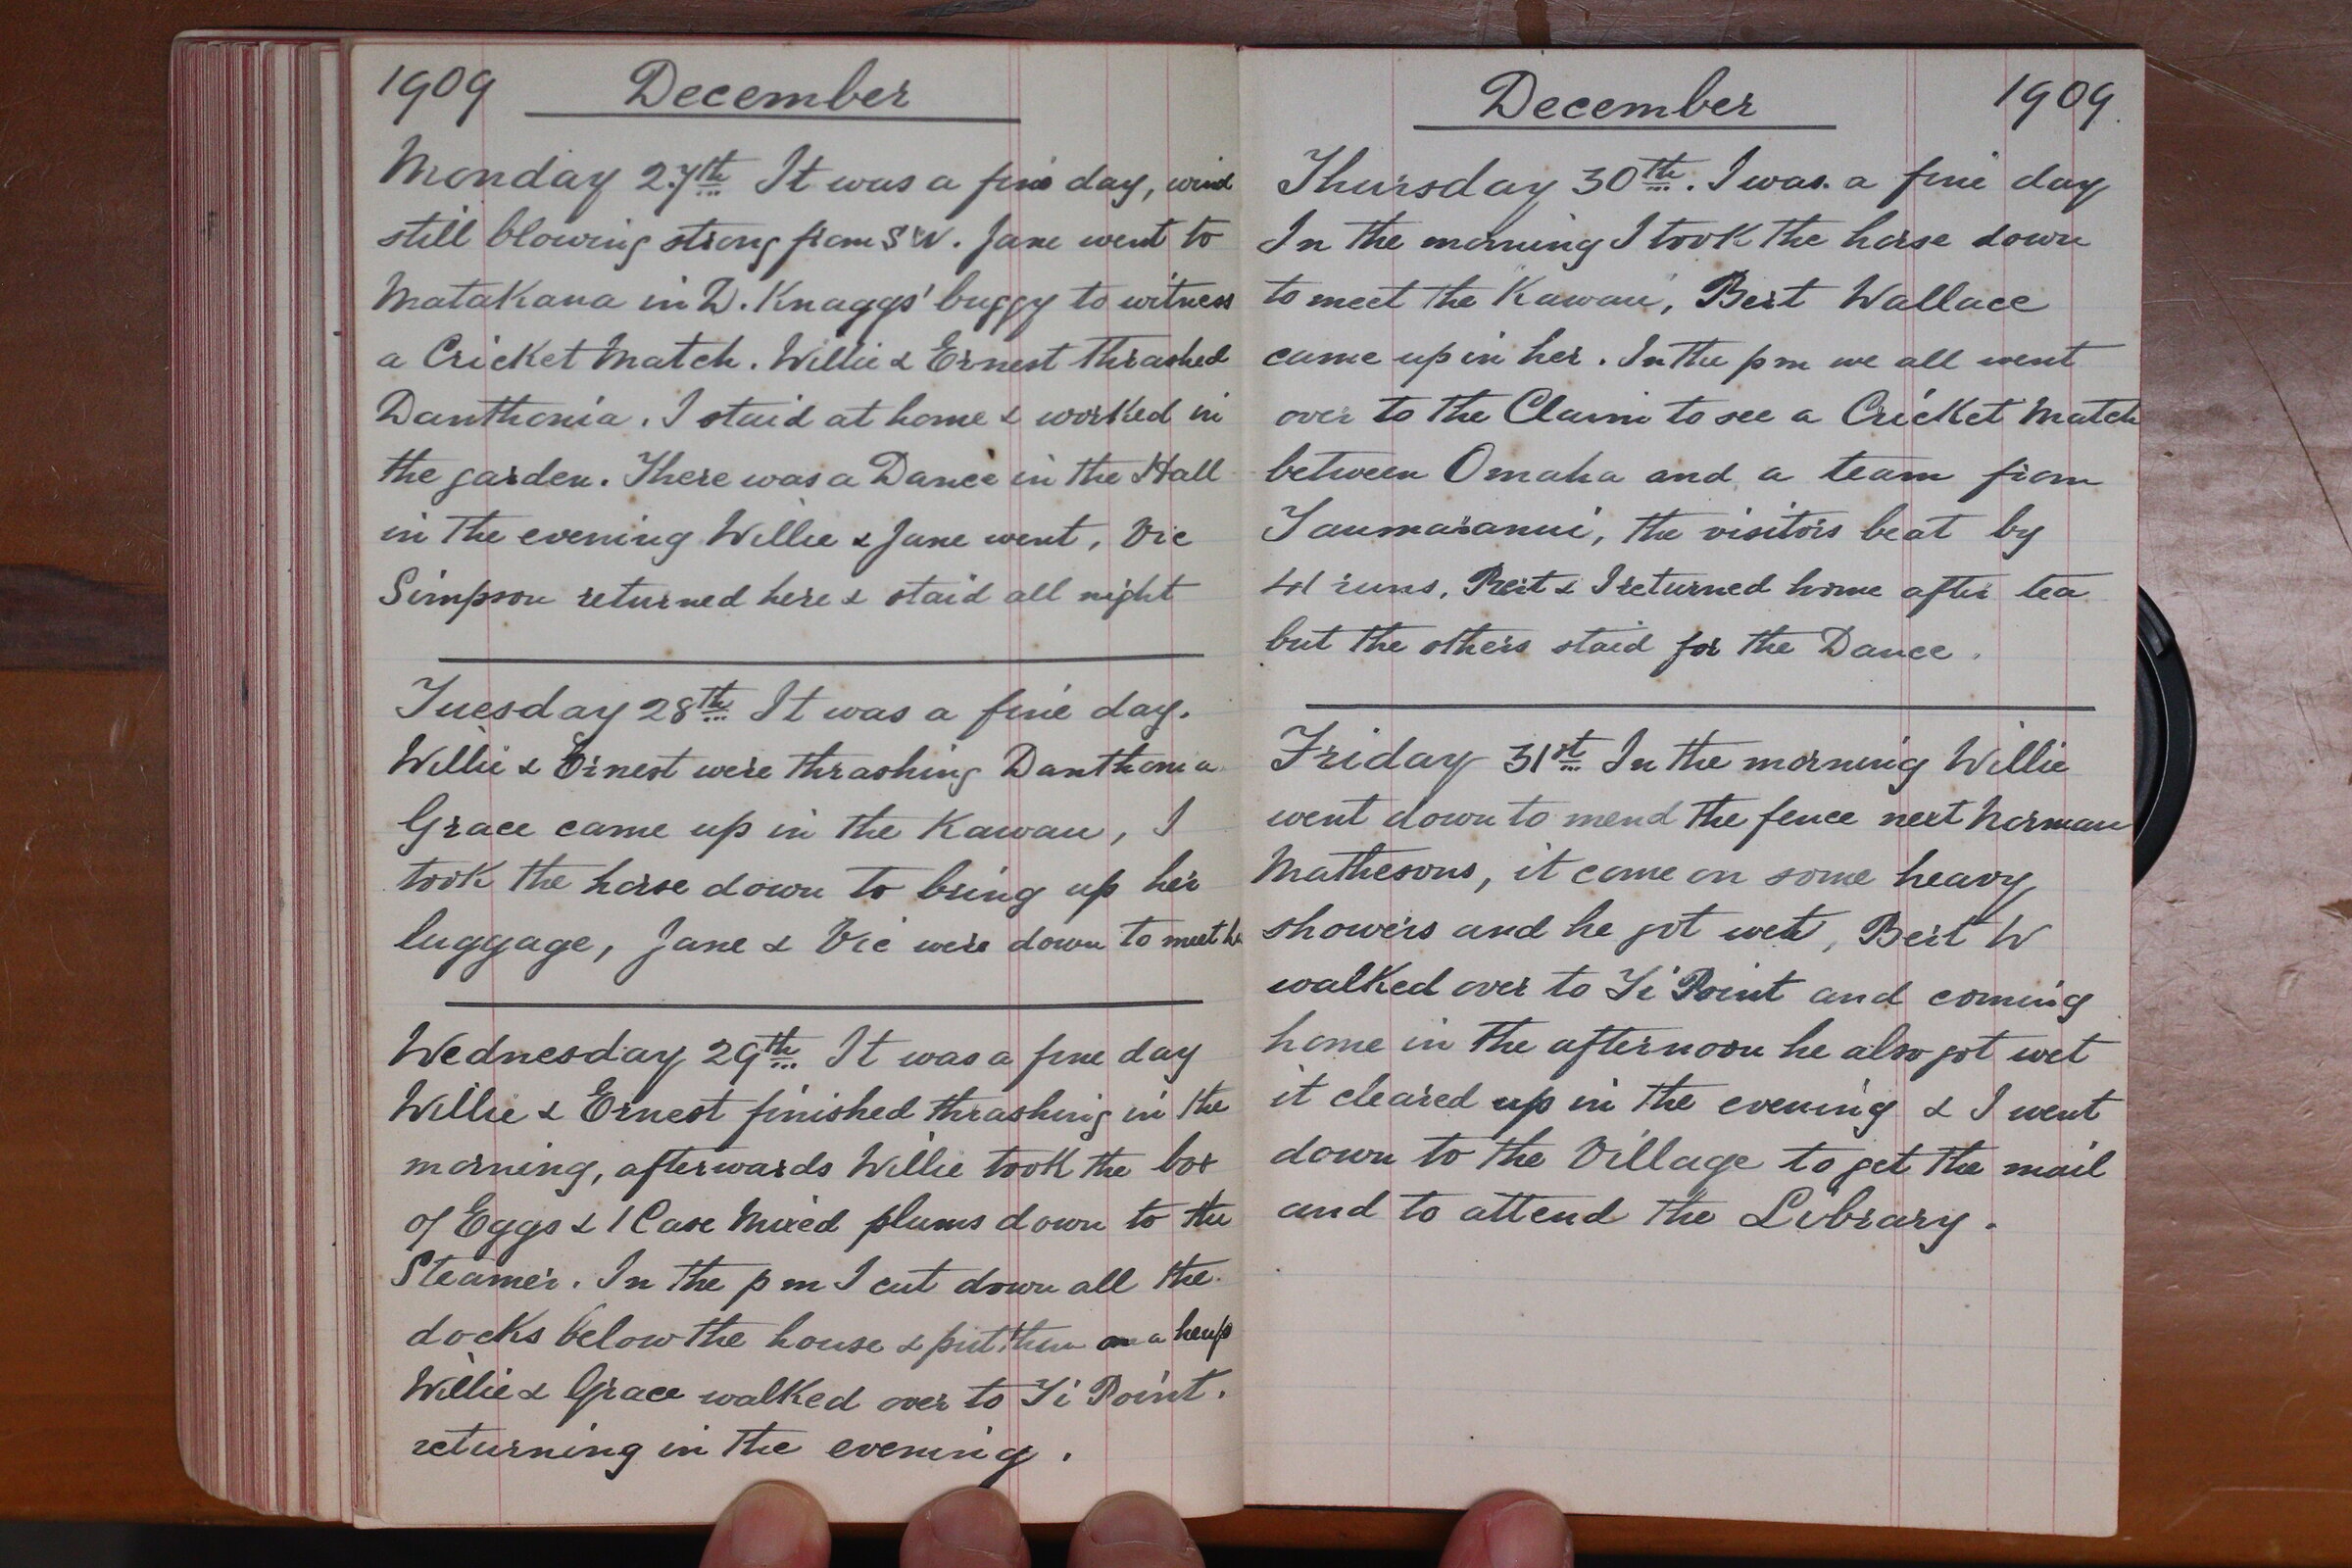 1909 December
Monday 27th It was a fine day, wind
still blowing strong from SW. Jane went to
Matakana in D. Knaggs' buggy to witness
a Cricket Match. Willie & Ernest thrashed
Danthonia. I staid at home & worked in
the garden. There was a Dance in the Hall
in the evening Willie & Jane went, Vic
Simpson returned here & staid all night
Tuesday 28th It was a fine day.
Willie & Ernest were thrashing Danthonia
Grace came up in the Kawau, I
took the horse down to bring up her
luggage, Jane & Vic were down to meet her
Wednesday 29th It was a fine day
Willie & Ernest finished thrashing in the
morning, afterwards Willie took the box
of Eggs & 1 Case Mixed plums down to the
Steamer. In the pm I cut down all the
docks below the house & put them on a heap
Willie & Grace walked over to Ti Point.
returning in the evening.
December 1909.
Thursday 30th. I was. a fine day
In the morning I took the horse down
to meet the "Kawau", Bert Wallace
came up in her. In the pm we all went
over to the Claim to see a Cricket Match
between Omaha and a team from
Taumaranui, the visitors beat by
41 runs. Bert & I returned home after tea
but the others staid for the Dance.
Friday 31st In the morning Willie
went down to mend the fence next Norman
Mathesons, it came on some heavy
showers and he got wet, Bert W
walked over to Ti Point and coming
home in the afternoon he also got wet
it cleared up in the evening & I went
down to the Village to get the mail
and to attend the Library.